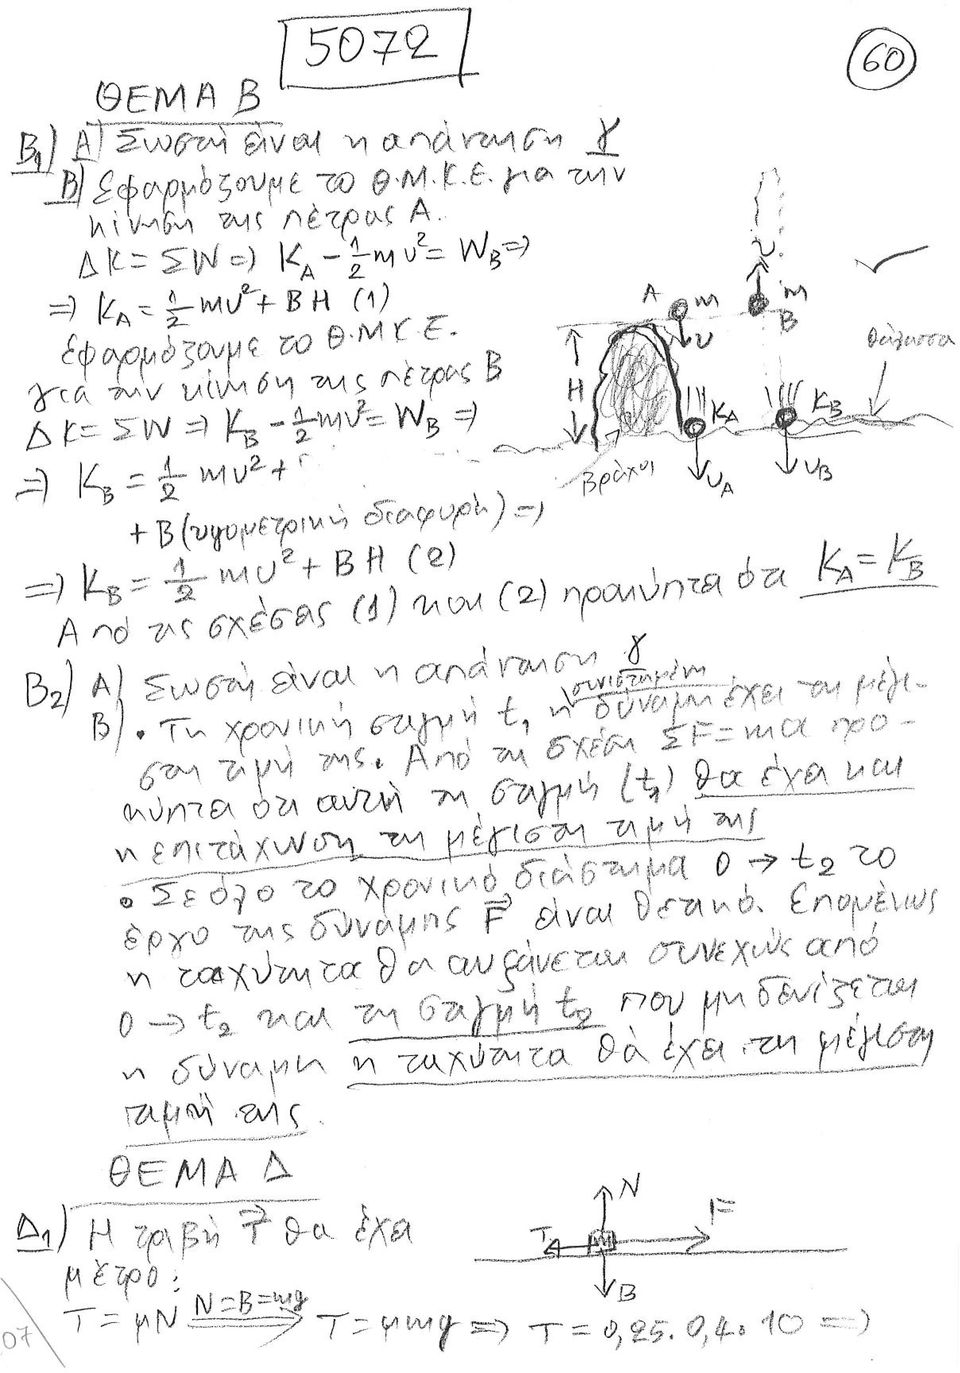 5072
60
ΘΕΜΑ Β
Β1) Α) Σωστή είναι η απάντηση γ
Β) Εφαρμόζουμε το Θ.Μ.Κ.Ε. για την
κίνηση της πέτρας Α.
ΔΚ = ΣW ⇒ K_A - 1/2 mυ² = W_B ⇒
⇒ K_A = 1/2 mυ² + BH (1)
Εφαρμόζουμε το Θ.Μ.Κ.Ε.
για την κίνηση της πέτρας Β
ΔΚ = ΣW ⇒ K_B - 1/2 mυ² = W_B ⇒
⇒ K_B = 1/2 mυ² +
+ Β (υψομετρική διαφορή) ⇒
⇒ K_B = 1/2 mυ² + BH (2)
Από τις σχέσεις (1) και (2) προκύπτει ότι K_A = K_B
A m υ
υ m B
H
K_A K_B
υ_A υ_B
βράχος
θάλασσα
Β2) Α) Σωστή είναι η απάντηση γ
Β) • Τη χρονική στιγμή t₁ η συνισταμένη δύναμη έχει τη μέγι-
στη τιμή της. Από τη σχέση ΣF = mα προ-
κύπτει ότι αυτή τη στιγμή (t₁) θα έχει και
η επιτάχυνση τη μέγιστη τιμή της
• Σε όλο το χρονικό διάστημα 0 → t₂ το
έργο της δύναμης F είναι θετικό. Επομένως
η ταχύτητα θα αυξάνεται συνεχώς από
0 → t₂ και τη στιγμή t₂ που μηδενίζεται
η δύναμη η ταχύτητα θα έχει τη μέγιστη
τιμή της.
ΘΕΜΑ Δ
Δ1) Η τριβή T θα έχει
μέτρο:
T = μN N=B=mg ⇒ T = μmg ⇒ T = 0,25 · 0,4 · 10 ⇒
N
T m F
B
07